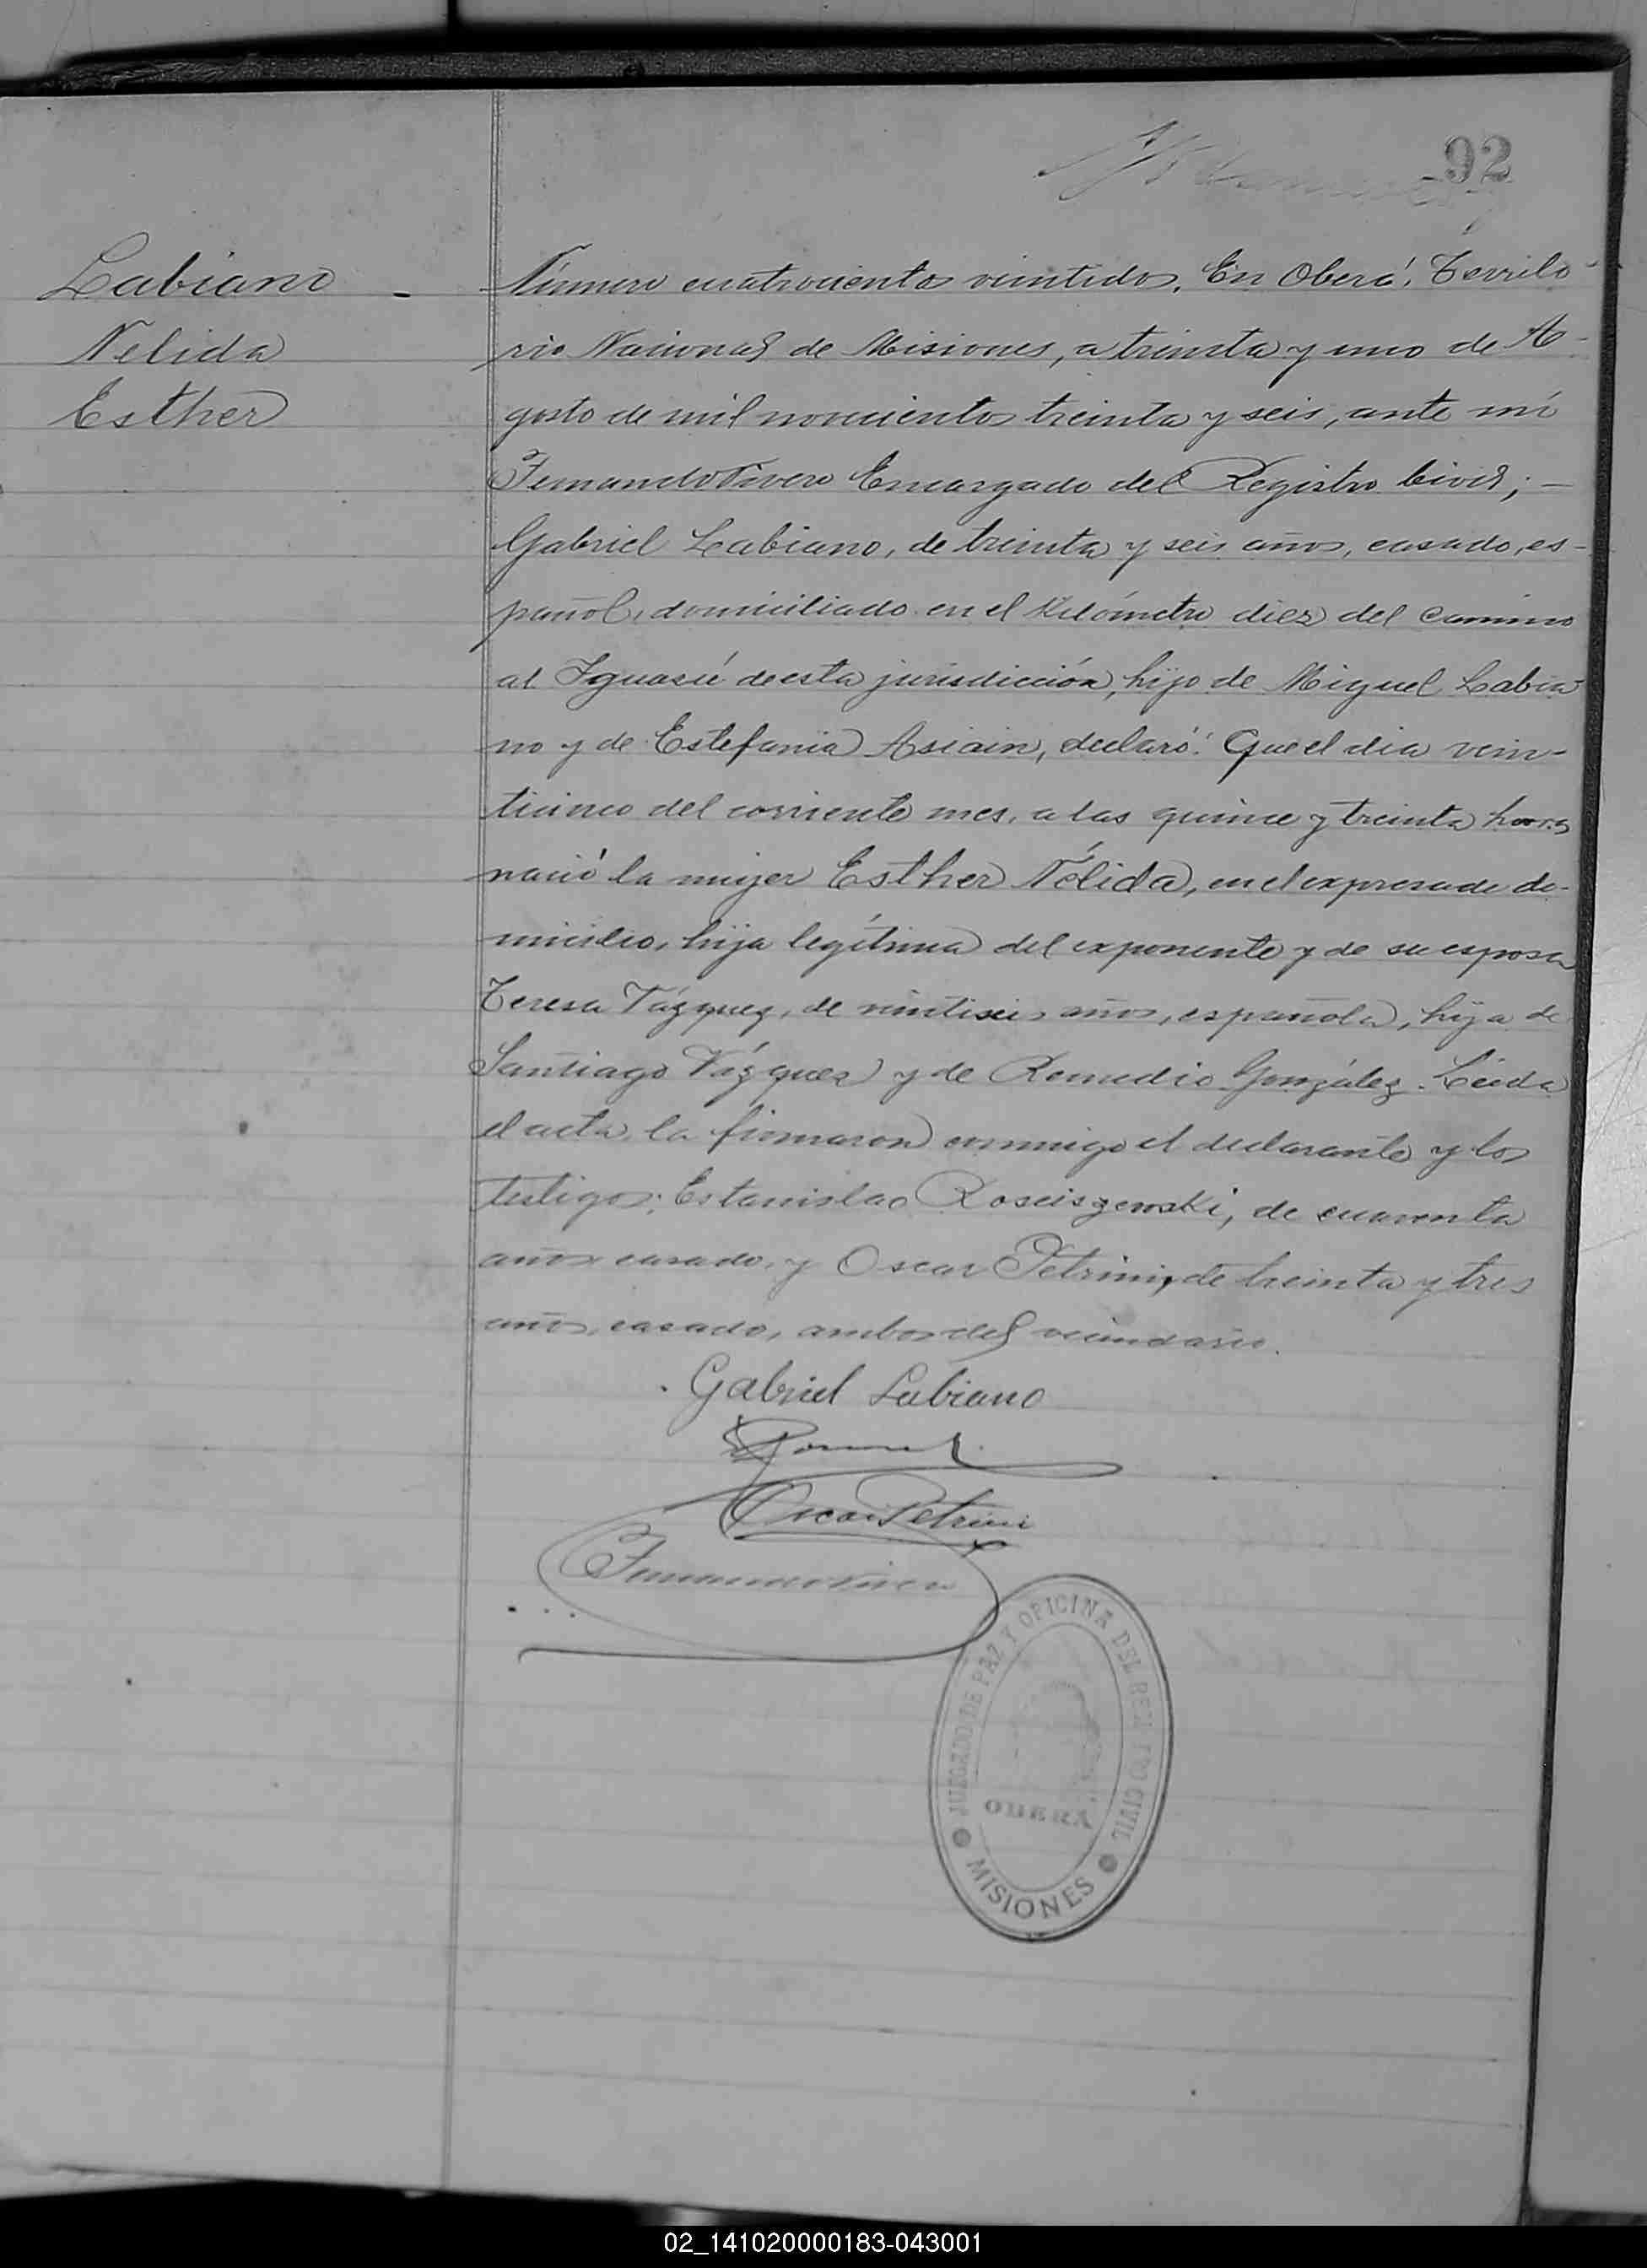 92
Labiano
Nelida
Esther
Número cuatrocientos veintidos. En Oberá, Territo-
rio Nacional de Misiones, a treinta y uno de A-
gosto de mil novecientos treinta y seis, ante mí
Fernando Encargado del Registro Civil; —
Gabriel Labiano, de treinta y seis años, casado, es-
pañol, domiciliado en el Kilómetro diez del camino
al Iguasú de esta jurisdicción, hijo de Miguel Labia-
no y de Estefania Asiain, declaró: Que el dia vein-
ticinco del corriente mes, a las quince y treinta horas
nació la mujer Esther Nélida, en el expresado do-
micilio, hija legítima del exponente y de su esposa
Teresa Vázquez, de veintiseis años, española, hija de
Santiago Vázquez y de Remedio González. Leída
el acta, la firmaron conmigo el declarante y los
testigos: Estanislao Rosciszewski, de cuarenta
años, casado, y Oscar Petrini, de treinta y tres
años, casado, ambos del vecindario.
Gabriel Labiano
Oscar Petrini
JUZGADO DE PAZ Y OFICINA DEL REGISTRO CIVIL
OBERÁ
MISIONES
02_141020000183-043001